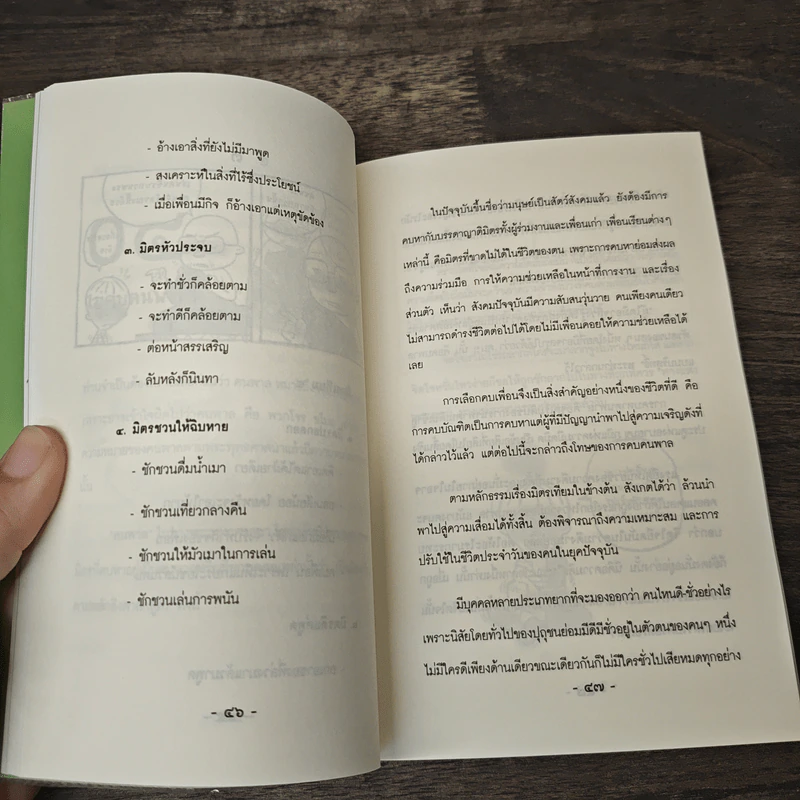 - อ้างเอาสิ่งที่ยังไม่มีมาพูด
- สงเคราะห์ในสิ่งที่ไร้ซึ่งประโยชน์
- เมื่อเพื่อนมีกิจ ก็อ้างเอาแต่เหตุขัดข้อง
๓. มิตรหัวประจบ
- จะทำชั่วก็คล้อยตาม
- จะทำดีก็คล้อยตาม
- ต่อหน้าสรรเสริญ
- ลับหลังก็นินทา
๔. มิตรชวนให้ฉิบหาย
- ชักชวนดื่มน้ำเมา
- ชักชวนเที่ยวกลางคืน
- ชักชวนให้มัวเมาในการเล่น
- ชักชวนเล่นการพนัน
- ๔๖ -
ในปัจจุบันขึ้นชื่อว่ามนุษย์เป็นสัตว์สังคมแล้ว ยังต้องมีการ
คบหากับบรรดาญาติมิตรทั้งผู้ร่วมงานและเพื่อนเก่า เพื่อนเรียนต่างๆ
เหล่านี้ คือมิตรที่ขาดไม่ได้ในชีวิตของตน เพราะการคบหาย่อมส่งผล
ถึงความร่วมมือ การให้ความช่วยเหลือในหน้าที่การงาน และเรื่อง
ส่วนตัว เห็นว่า สังคมปัจจุบันมีความสับสนวุ่นวาย คนเพียงคนเดียว
ไม่สามารถดำรงชีวิตต่อไปได้โดยไม่มีเพื่อนคอยให้ความช่วยเหลือได้
เลย
การเลือกคบเพื่อนจึงเป็นสิ่งสำคัญอย่างหนึ่งของชีวิตที่ดี คือ
การคบบัณฑิตเป็นการคบหาแต่ผู้ที่มีปัญญานำพาไปสู่ความเจริญดังที่
ได้กล่าวไว้แล้ว แต่ต่อไปนี้จะกล่าวถึงโทษของการคบคนพาล
ตามหลักธรรมเรื่องมิตรเทียมในข้างต้น สังเกตได้ว่า ล้วนนำ
พาไปสู่ความเสื่อมได้ทั้งสิ้น ต้องพิจารณาถึงความเหมาะสม และการ
ปรับใช้ในชีวิตประจำวันของคนในยุคปัจจุบัน
มีบุคคลหลายประเภทยากที่จะมองออกว่า คนไหนดี-ชั่วอย่างไร
เพราะนิสัยโดยทั่วไปของปุถุชนย่อมมีดีมีชั่วอยู่ในตัวตนของคนๆ หนึ่ง
ไม่มีใครดีเพียงด้านเดียวขณะเดียวกันก็ไม่มีใครชั่วไปเสียหมดทุกอย่าง
- ๔๗ -